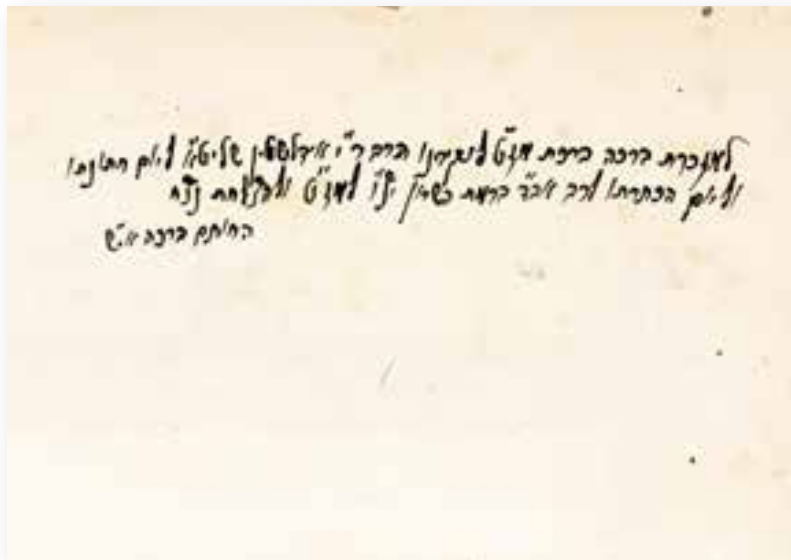 למזכרת ברכה ברכת מז"ט לידידנו הרב ר"י אידלשטין שליט"א ליום חתונתו
וליום הכתרתו לרב אב"ד ברמת יצ"ו למז"ט ולהצלחת נצח
החותם ברכה א"ש